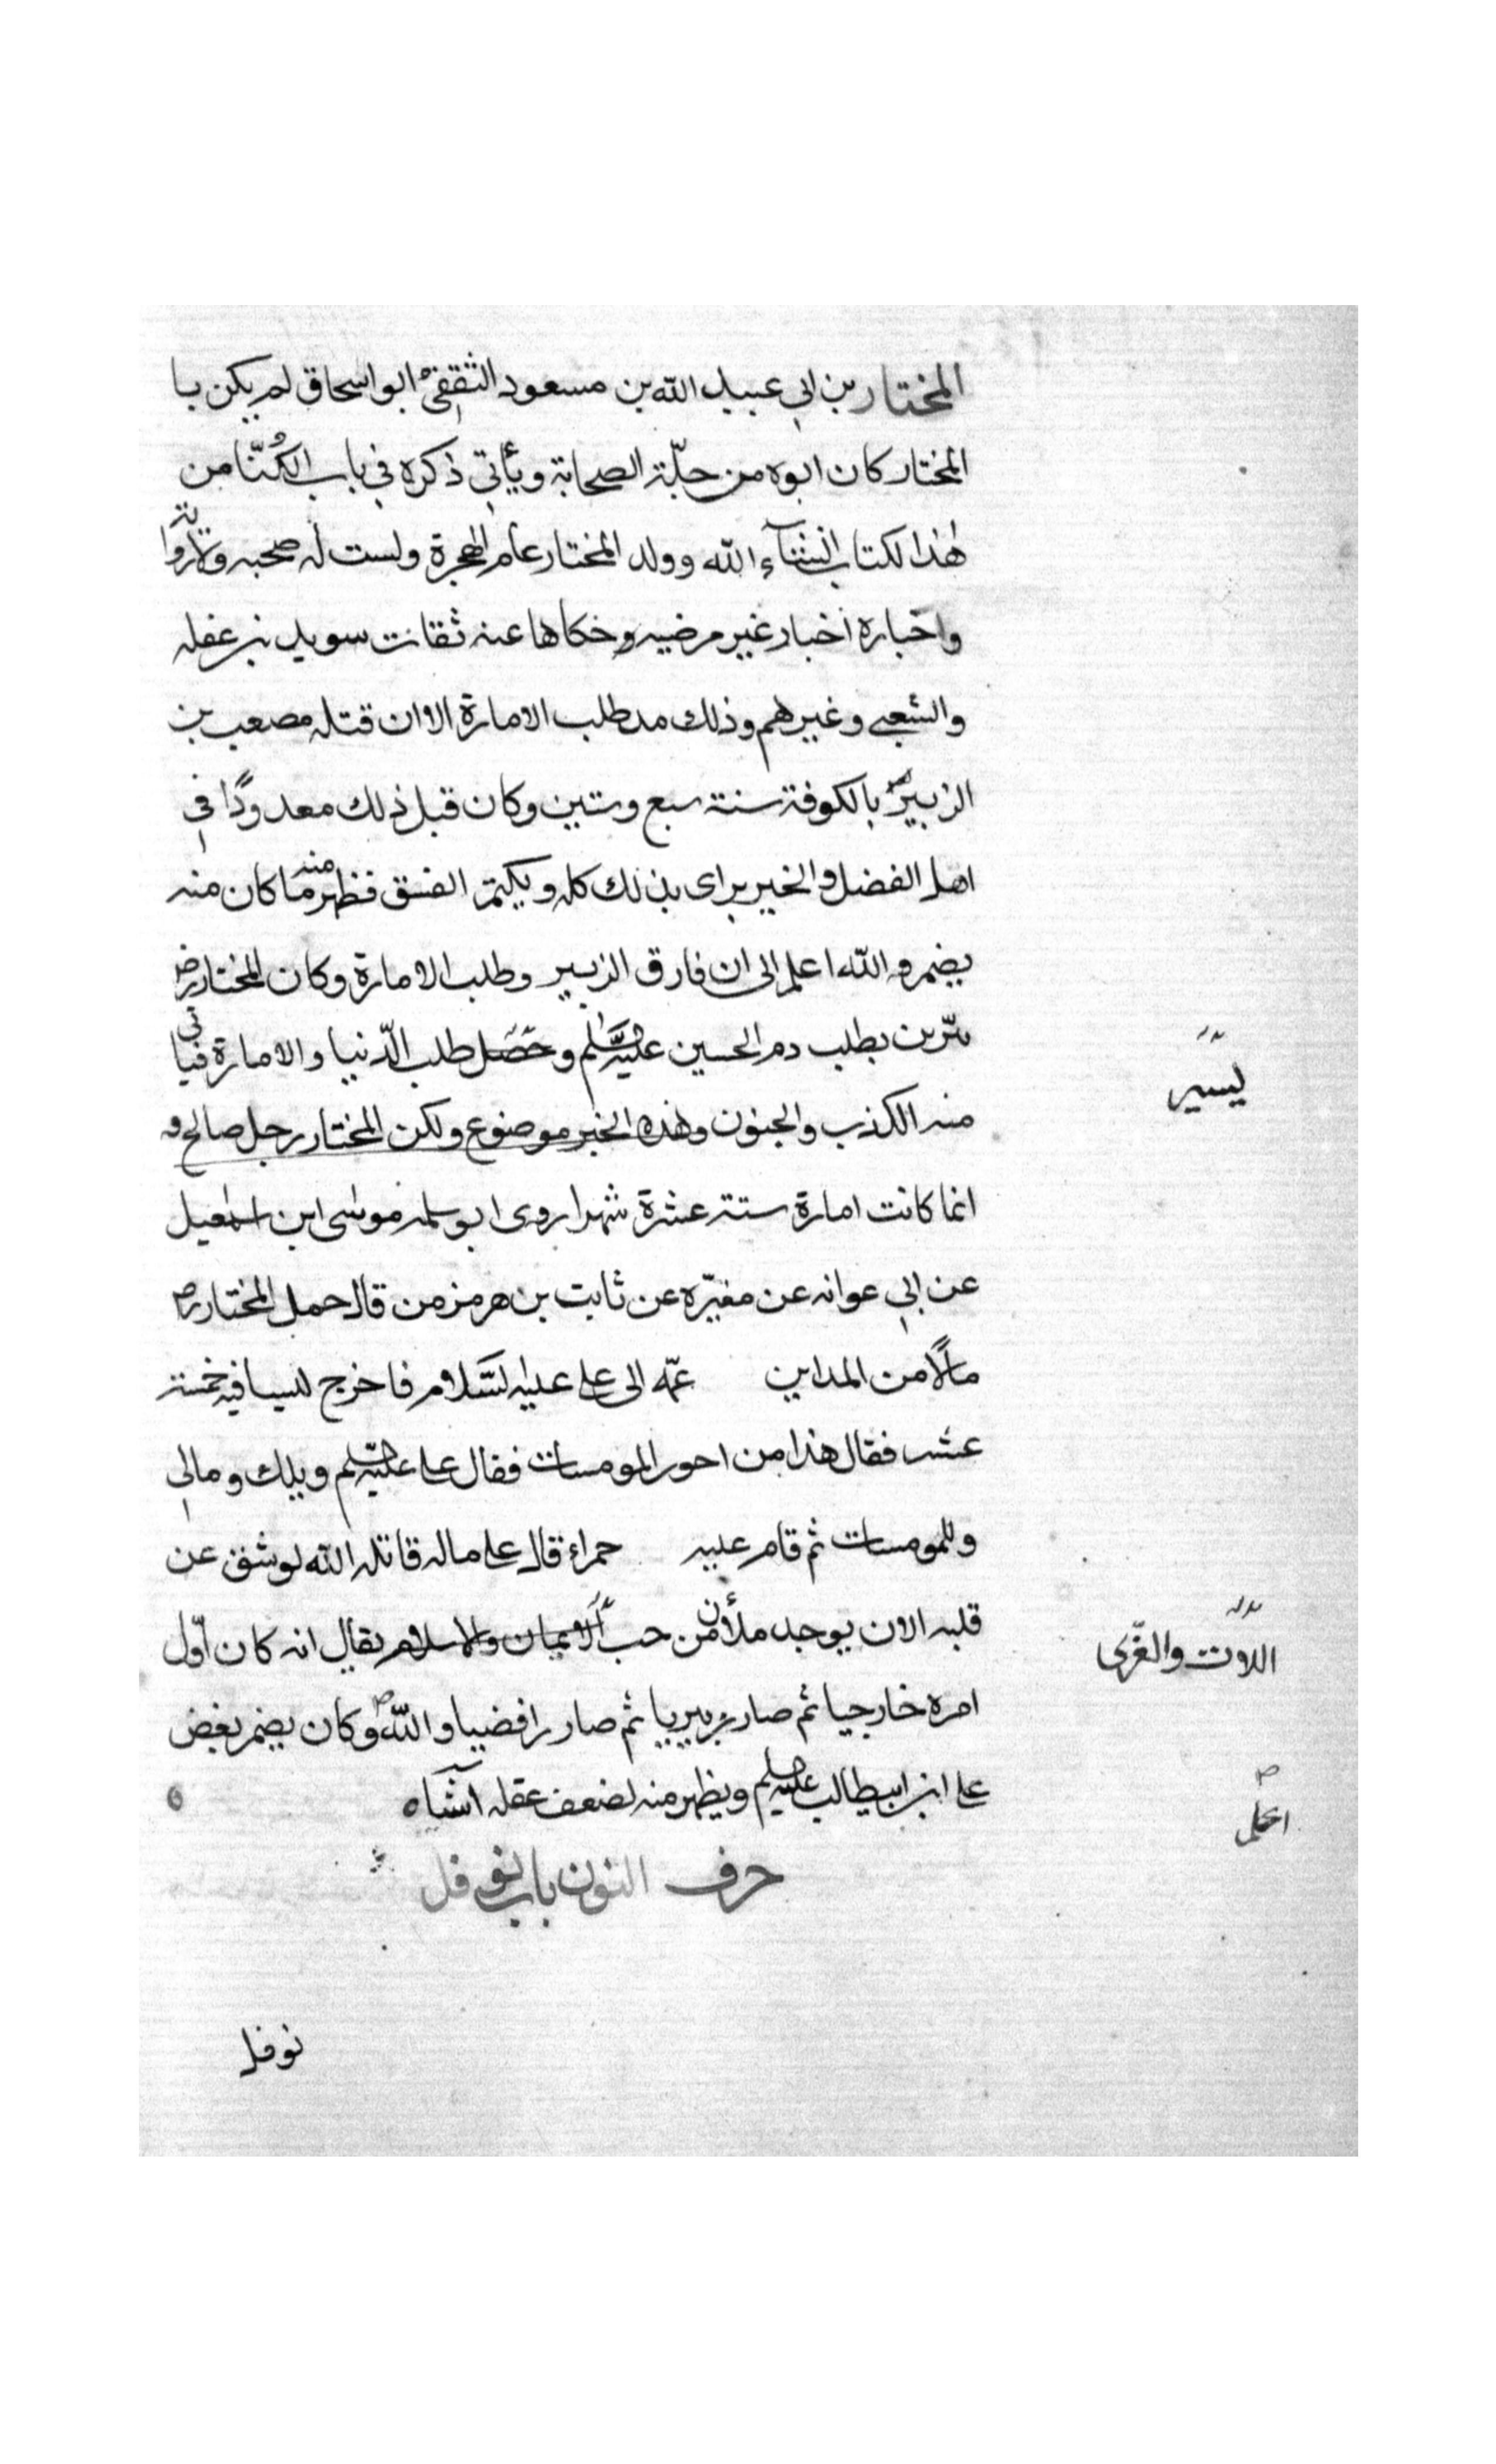 المختار بن ابي عبيد الله بن مسعود الثقفي ابو اسحاق لم يكن با
المختار كان ابوه من جلّة الصحابة ويأتي ذكره في باب الكُنّا من
هٰذا لكتاب انشآء الله وولد المختار عام الهجرة ولست له صحبه ولا رواية
واخباره اخبار غير مرضيه وحكاها عنه ثقات سويد بن غفله
والشعبي وغيرهم وذلك مد طلب الامارة الا ان قتله مصعب بن
الزبير بالكوفة سنة سبع وستين وكان قبل ذلك معدودًا في
اهل الفضل والخير يراى بذلك كله ويكتم الفسق فظهر منه ما كان منه
يضمر والله اعلم الى ان فارق الزبير وطلب الامارة وكان المختار
يتزين بطلب دم الحسين عليه السلم و طلب الدّنيا والامارة فياتي
منه الكذب والجنون وهذه الخبر موضوع ولكن المختار رجل صالح و
انما كانت امارة ستة عشرة شهرا روى ابو سلمه موسى ابن اسمعيل
عن ابي عوانه عن مغيّره عن ثابت بن هرمز من قال حمل المختار
مالًا من المداين عمّه الى على عليه السّلام فاخرج كيسا فيه خمسة
عشر فقال هذا من اجور المومسات فقال على عليه السلم ويلك ومالي
وللمومسات ثم قام عليه حمراء قال على ماله قاتله الله لو شق عن
قلبه الان يوجد ملأن من حب الايمان والاسلام يقال انه كان اوّل
امره خارجيا ثم صار زبيريا ثم صار رافضيا والله وكان يضمر بغض
على ابن ابيطالب عليه السلم ويظهر منه لضعف عقله آشياء
حرف النون باب نوفل
نوفل
يسير
اللات والعزّى
اعلم